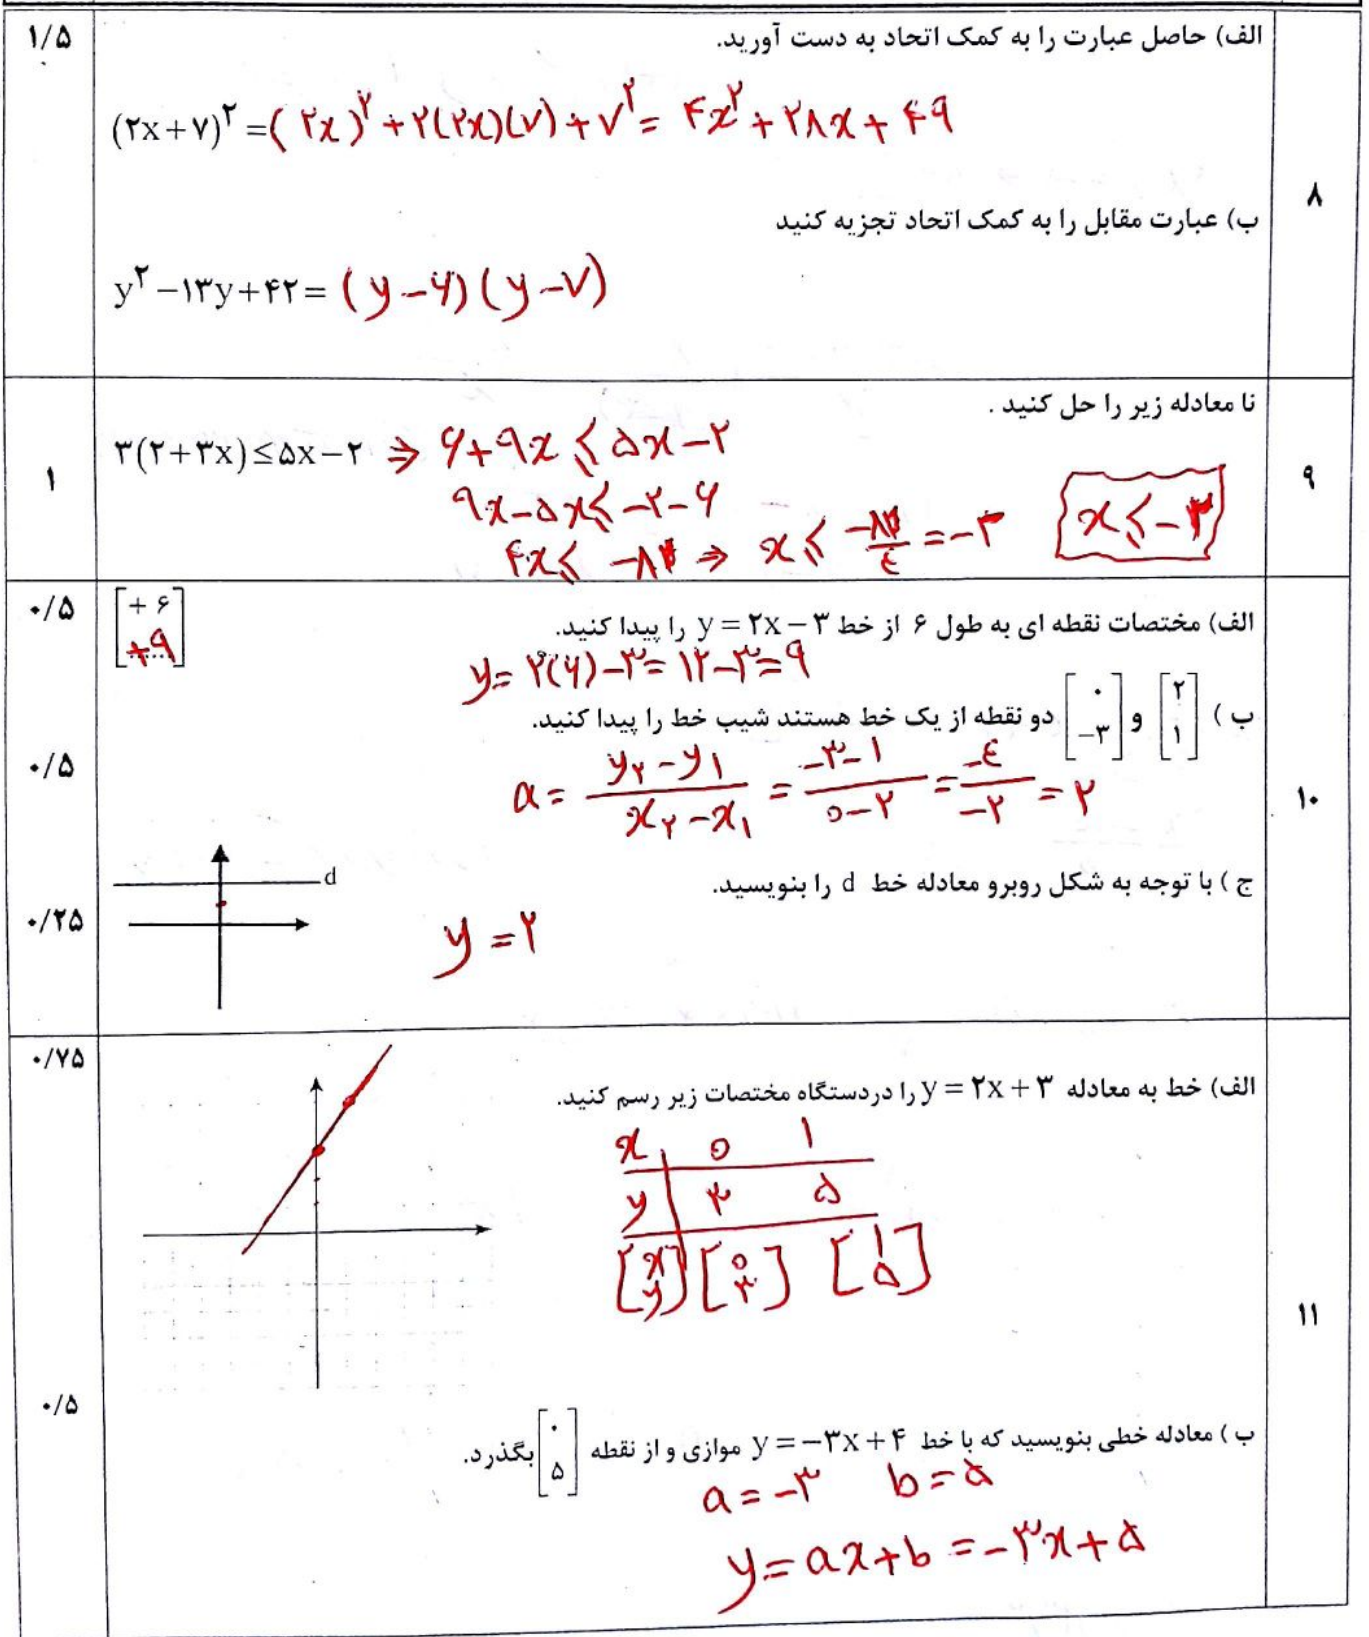 ۱/۵
الف) حاصل عبارت را به کمک اتحاد به دست آورید.
(۲x+۷)^۲ = (۲x)^۲ + ۲(۲x)(۷) + ۷^۲ = ۴x^۲ + ۲۸x + ۴۹
۸
ب) عبارت مقابل را به کمک اتحاد تجزیه کنید
y^۲ −۱۳y+۴۲ = (y−۶)(y−۷)
نا معادله زیر را حل کنید .
۱
۳(۲+۳x)≤۵x−۲ ⇒ ۶+۹x ≤ ۵x−۲
۹x−۵x ≤ −۲−۶
x ≤ −
۹
۰/۵
الف) مختصات نقطه ای به طول ۶ از خط y = ۲x − ۳ را پیدا کنید.
[+ ۶
+۹]
y = ۲(۶)−۳ = ۱۲−۳ = ۹
۰/۵
ب ) [۲ ۱] و [۰ −۳] دو نقطه از یک خط هستند شیب خط را پیدا کنید.
a = (y۲−y۱)/(x۲−x۱) = (−۳−۱)/(۰−۲) = −۴/−۲ = ۲
۱۰
۰/۲۵
ج ) با توجه به شکل روبرو معادله خط d را بنویسید.
d
y = ۲
۰/۷۵
الف) خط به معادله y = ۲x + ۳ را دردستگاه مختصات زیر رسم کنید.
x ۰ ۱
y ۳ ۵
[x y] [۰ ۳] [۱ ۵]
۱۱
۰/۵
ب ) معادله خطی بنویسید که با خط y = −۳x + ۴ موازی و از نقطه [۰ ۵] بگذرد.
a = −۳ b = ۵
y = ax+b = −۳x+۵